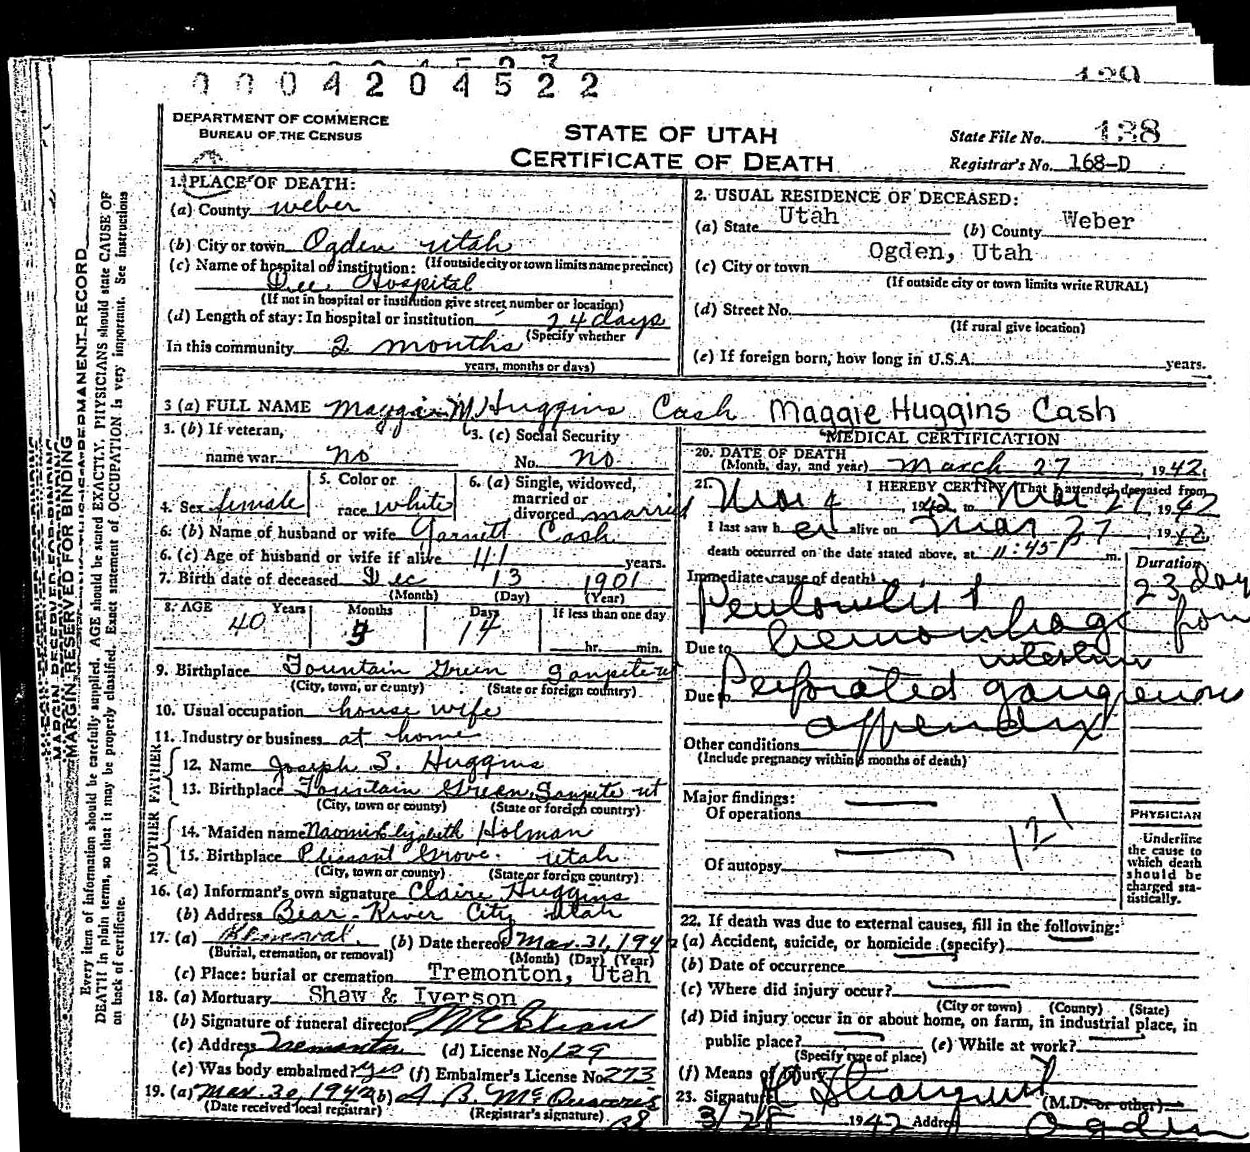 0004204522
DEPARTMENT OF COMMERCE
BUREAU OF THE CENSUS
STATE OF UTAH
CERTIFICATE OF DEATH
State File No. 138
Registrar's No. 168-D
1. PLACE OF DEATH:
(a) County Weber
(b) City or town Ogden Utah
(If outside city or town limits name precinct)
(c) Name of hospital or institution:
Dee Hospital
(If not in hospital or institution give street number or location)
(d) Length of stay: In hospital or institution 24 days
(Specify whether
In this community 2 months
years, months or days)
2. USUAL RESIDENCE OF DECEASED:
(a) State Utah (b) County Weber
(c) City or town Ogden, Utah
(If outside city or town limits write RURAL)
(d) Street No.
(If rural give location)
(e) If foreign born, how long in U.S.A. years.
3 (a) FULL NAME Maggie M. Huggins Cash Maggie Huggins Cash
3. (b) If veteran, name war no
3. (c) Social Security No. no
4. Sex female
5. Color or race white
6. (a) Single, widowed, married or divorced married
6. (b) Name of husband or wife Garnett Cash
6. (c) Age of husband or wife if alive 41 years.
7. Birth date of deceased Dec 13 1901
(Month) (Day) (Year)
8. AGE Years Months Days If less than one day
40 3 14 hr. min.
9. Birthplace Fountain Green Sanpete ut
(City, town, or county) (State or foreign country)
10. Usual occupation house wife
11. Industry or business at home
FATHER
12. Name Joseph S. Huggins
13. Birthplace Fountain Green, Sanpete ut
(City, town or county) (State or foreign country)
MOTHER
14. Maiden name Naomi Elizabeth Holman
15. Birthplace Plesant Grove. utah
(City, town or county) (State or foreign country)
16. (a) Informant's own signature Claire Huggins
(b) Address Bear River City Utah
17. (a) Removal (b) Date thereof Mar. 31, 1942
(Burial, cremation, or removal) (Month) (Day) (Year)
(c) Place: burial or cremation Tremonton, Utah
18. (a) Mortuary Shaw & Iverson
(b) Signature of funeral director
(c) Address Tremonton (d) License No. 129
(e) Was body embalmed? yes (f) Embalmer's License No. 273
19. (a) Mar. 30, 1942 (b)
(Date received local registrar) (Registrar's signature)
MEDICAL CERTIFICATION
20. DATE OF DEATH
(Month, day, and year) March 27, 1942
21. I HEREBY CERTIFY, That I attended deceased from
Mar 4, 1942 to Mar 27, 1942
I last saw her alive on Mar 27, 1942
death occurred on the date stated above, at 11:45 P m.
Duration
Immediate cause of death Peritonitis 23 days
Due to hemorrhage from
intestine
Due to Perforated gangrenous
appendix
Other conditions
(Include pregnancy within 3 months of death)
Major findings:
Of operations
Of autopsy
121
PHYSICIAN
Underline
the cause to
which death
should be
charged sta-
tistically.
22. If death was due to external causes, fill in the following:
(a) Accident, suicide, or homicide (specify)
(b) Date of occurrence
(c) Where did injury occur?
(City or town) (County) (State)
(d) Did injury occur in or about home, on farm, in industrial place, in
public place? (e) While at work?
(Specify type of place)
(f) Means of injury
23. Signature (M.D. or other)
3/28 1942 Address Ogden
MARGIN RESERVED FOR BINDING
Every item of information should be carefully supplied. AGE should be stated EXACTLY. PHYSICIANS should state CAUSE OF
DEATH in plain terms, so that it may be properly classified. Exact statement of OCCUPATION is very important. See instructions
on back of certificate.